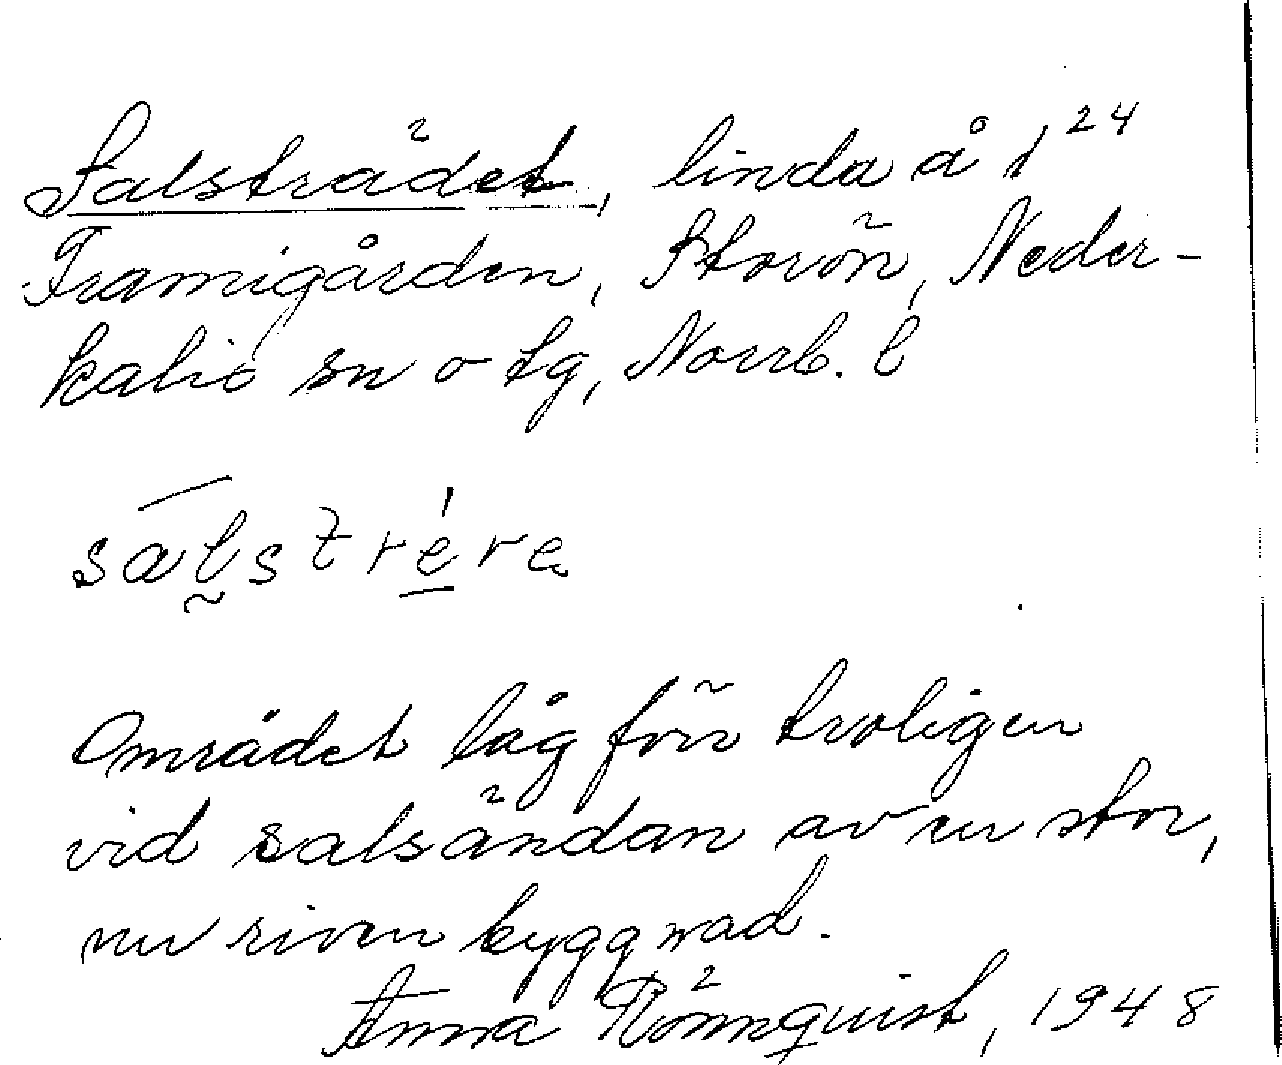 Salsträdet, linda å 1²⁴
Framigården, Storön, Neder-
kalix sn o tg, Norrb. l
Området låg förr troligen
vid salsändan av en stor,
nu riven byggnad.
Anna Rönnquist, 1948